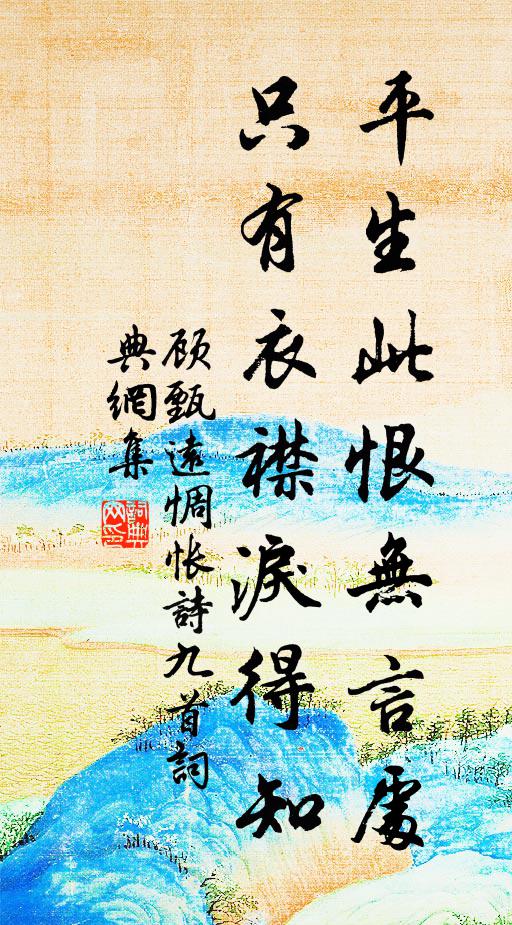 平生此恨無言處
只有衣襟淚得知
顾甄遠惆怅詩九首詞
典網集
詞典
网印